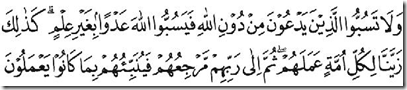 وَلَا تَسُبُّوا الَّذِيْنَ يَدْعُوْنَ مِنْ دُوْنِ اللّٰهِ فَيَسُبُّوا اللّٰهَ عَدْوًا بِغَيْرِ عِلْمٍ ۗ كَذٰلِكَ
زَيَّنَّا لِكُلِّ اُمَّةٍ عَمَلَهُمْ ۖ ثُمَّ اِلٰى رَبِّهِمْ مَّرْجِعُهُمْ فَيُنَبِّئُهُمْ بِمَا كَانُوْا يَعْمَلُوْنَ